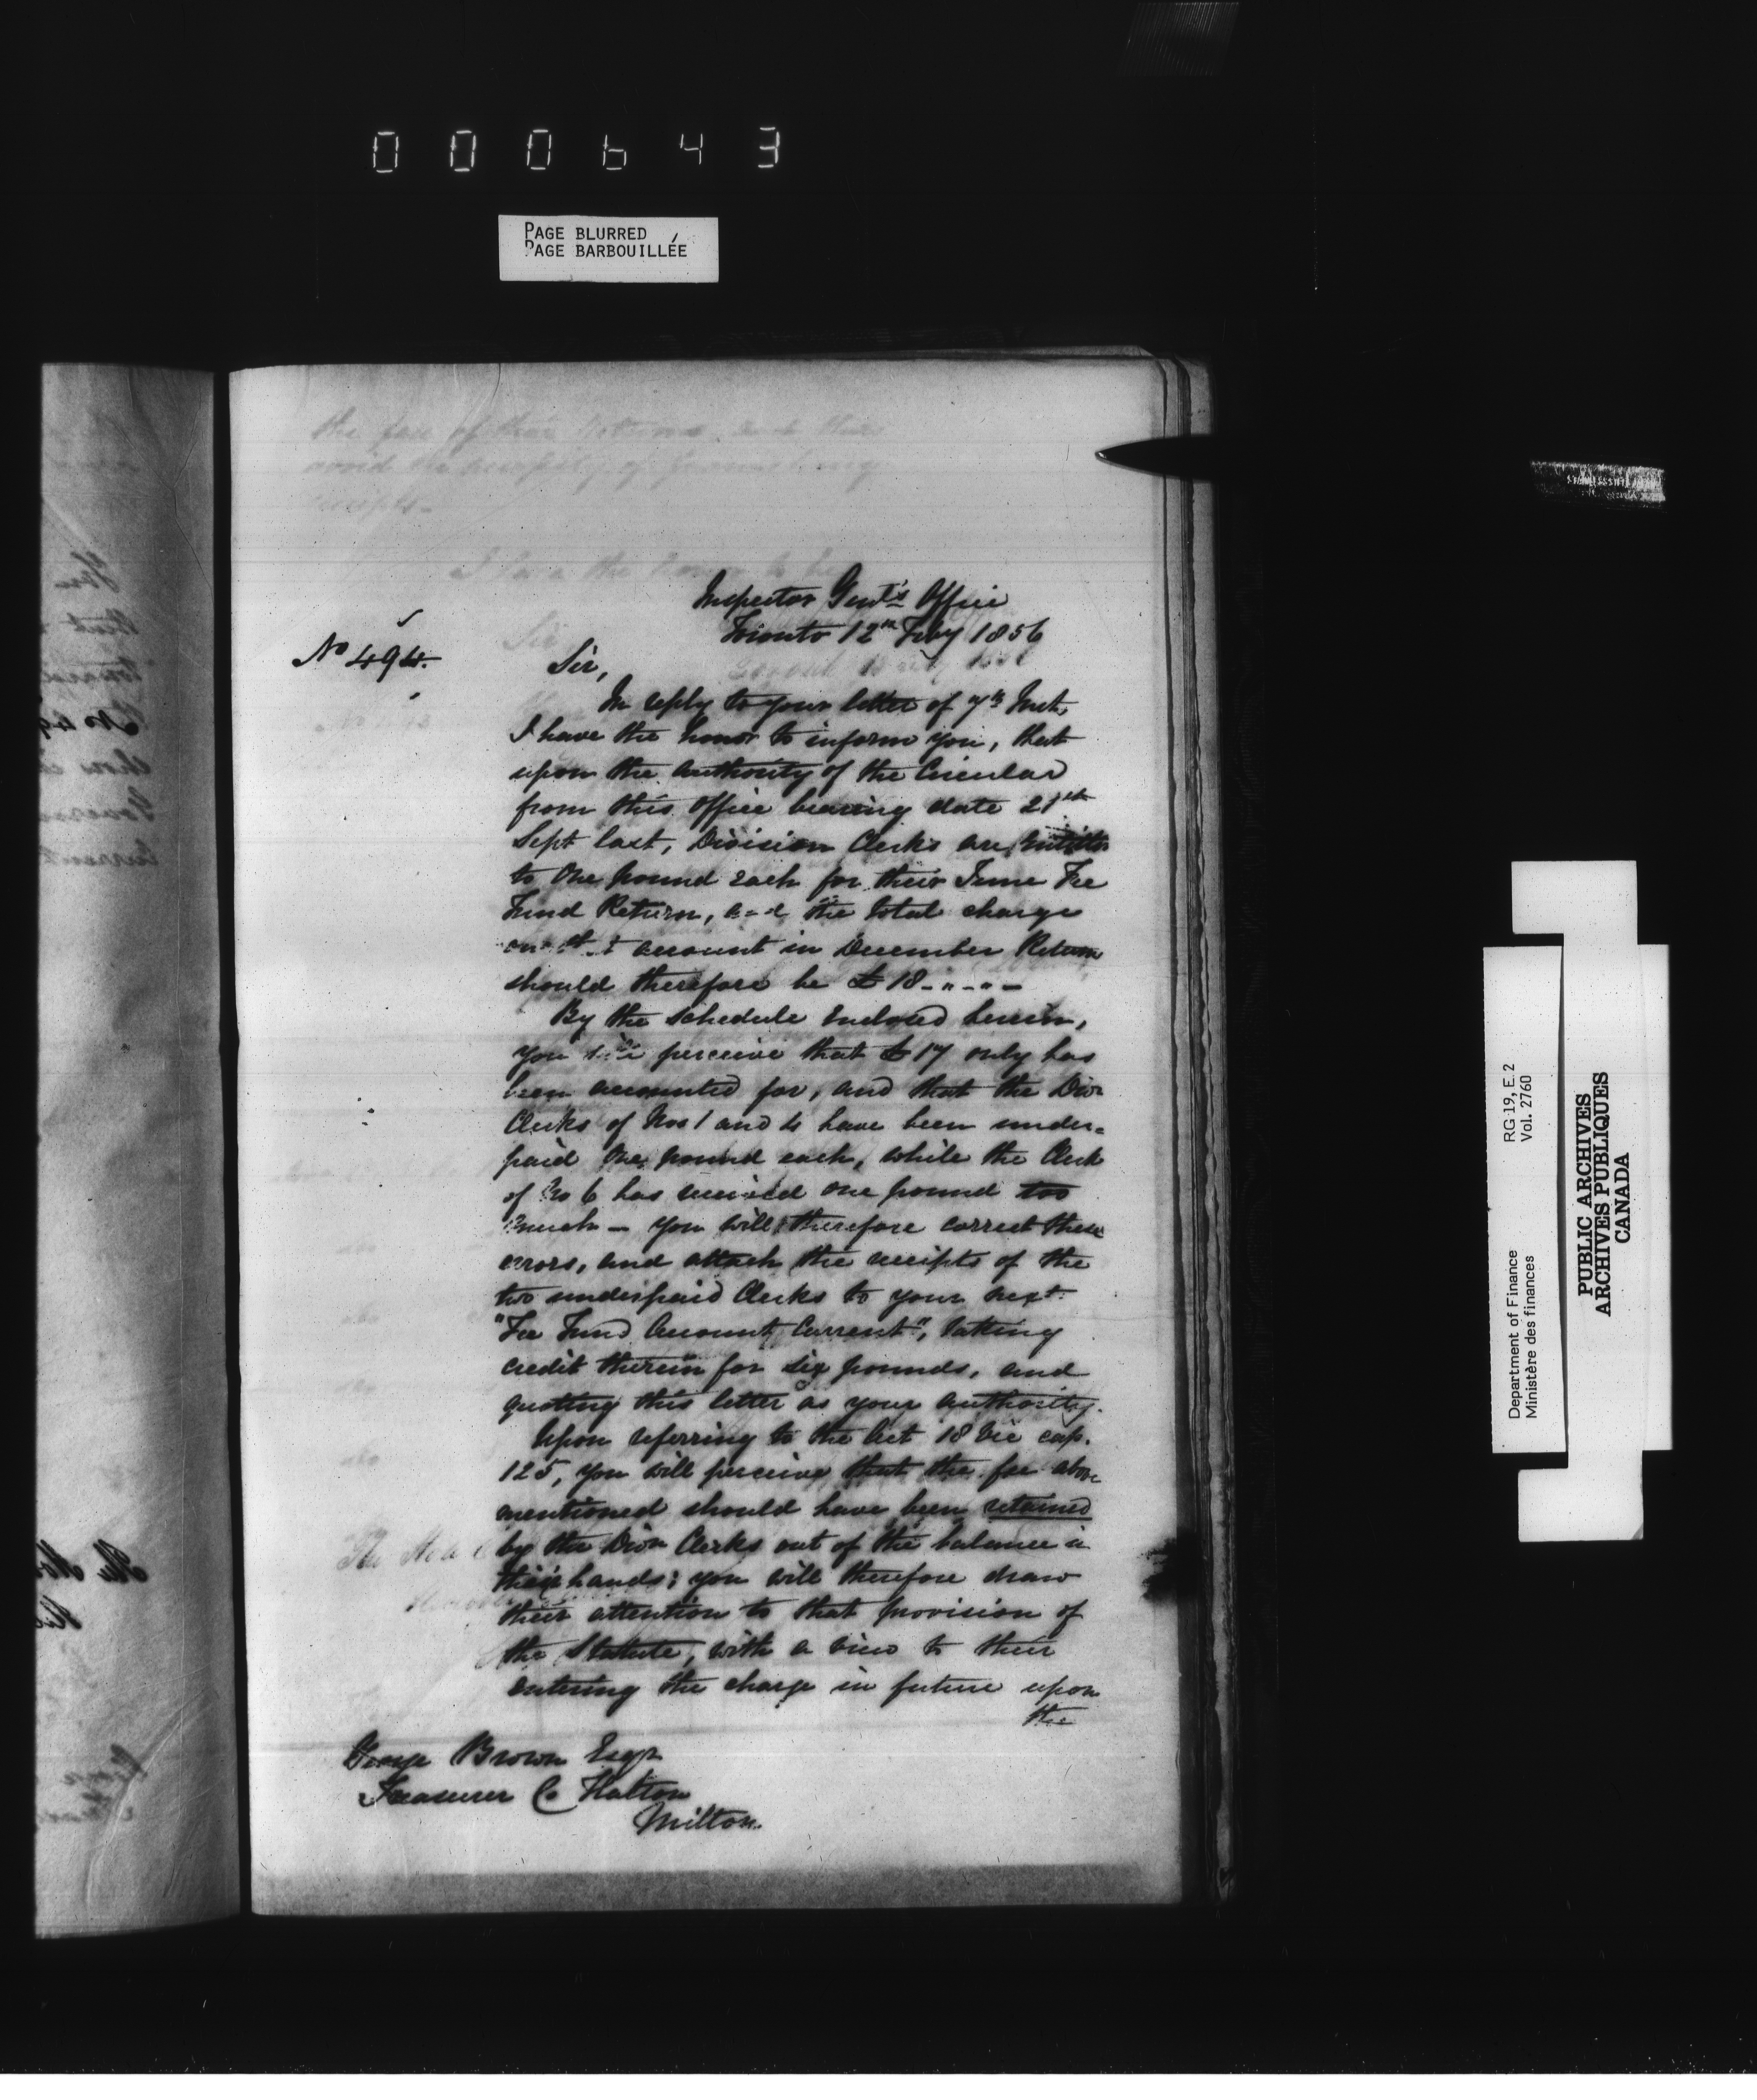 000643
PAGE BLURRED
PAGE BARBOUILLÉE
Inspector Genl's Office
Toronto 12th Feby 1856
No 494.
Sir,
In reply to your letter of 7th Inst,
I have the honor to inform you, that
upon the authority of the Circular
from this Office bearing date 21st
Sept last, Division Clerks are entitled
to One pound each for their June Fee
Fund Return, and the total charge
on that account in December Return
should therefore be £18-"-"-
By the Schedule Enclosed herein,
you will perceive that £17 only has
been accounted for, and that the Divn
Clerks of Nos 1 and 4 have been under=
paid One pound each, while the Clerk
of No 6 has received one pound too
much - you will therefore correct these
errors, and attach the receipts of the
two underpaid Clerks to your next
"Fee Fund Account Current", taking
credit therein for six pounds, and
quoting this letter as your authority.
Upon referring to the Act 18 Vic cap.
125, you will perceive that the fee above
mentioned should have been retained
by the Divn Clerks out of the balance in
their hands; you will therefore draw
their attention to that provision of
the Statute, with a view to their
entering the charge in future upon
the
George Brown Esqr
Treasurer Co Halton
Milton.
RG 19, E. 2
Vol. 2760
Department of Finance
Ministère des finances
PUBLIC ARCHIVES
ARCHIVES PUBLIQUES
CANADA